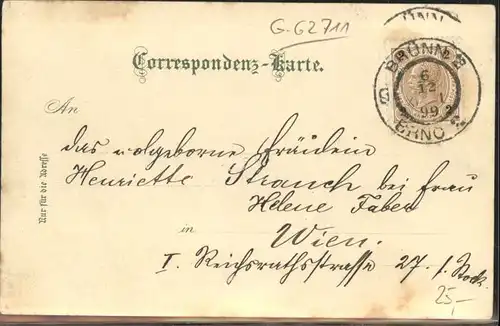 G.62711
BRÜNN
6
12
99
BRNO
Correspondenz-Karte.
An
das wolgeborne Fräulein
Henriette Strauch bei Frau
Helene Faber
in
Wien.
I. Reichsrathsstrasse 27. 1. Stock.
Nur für die Adresse
25,-